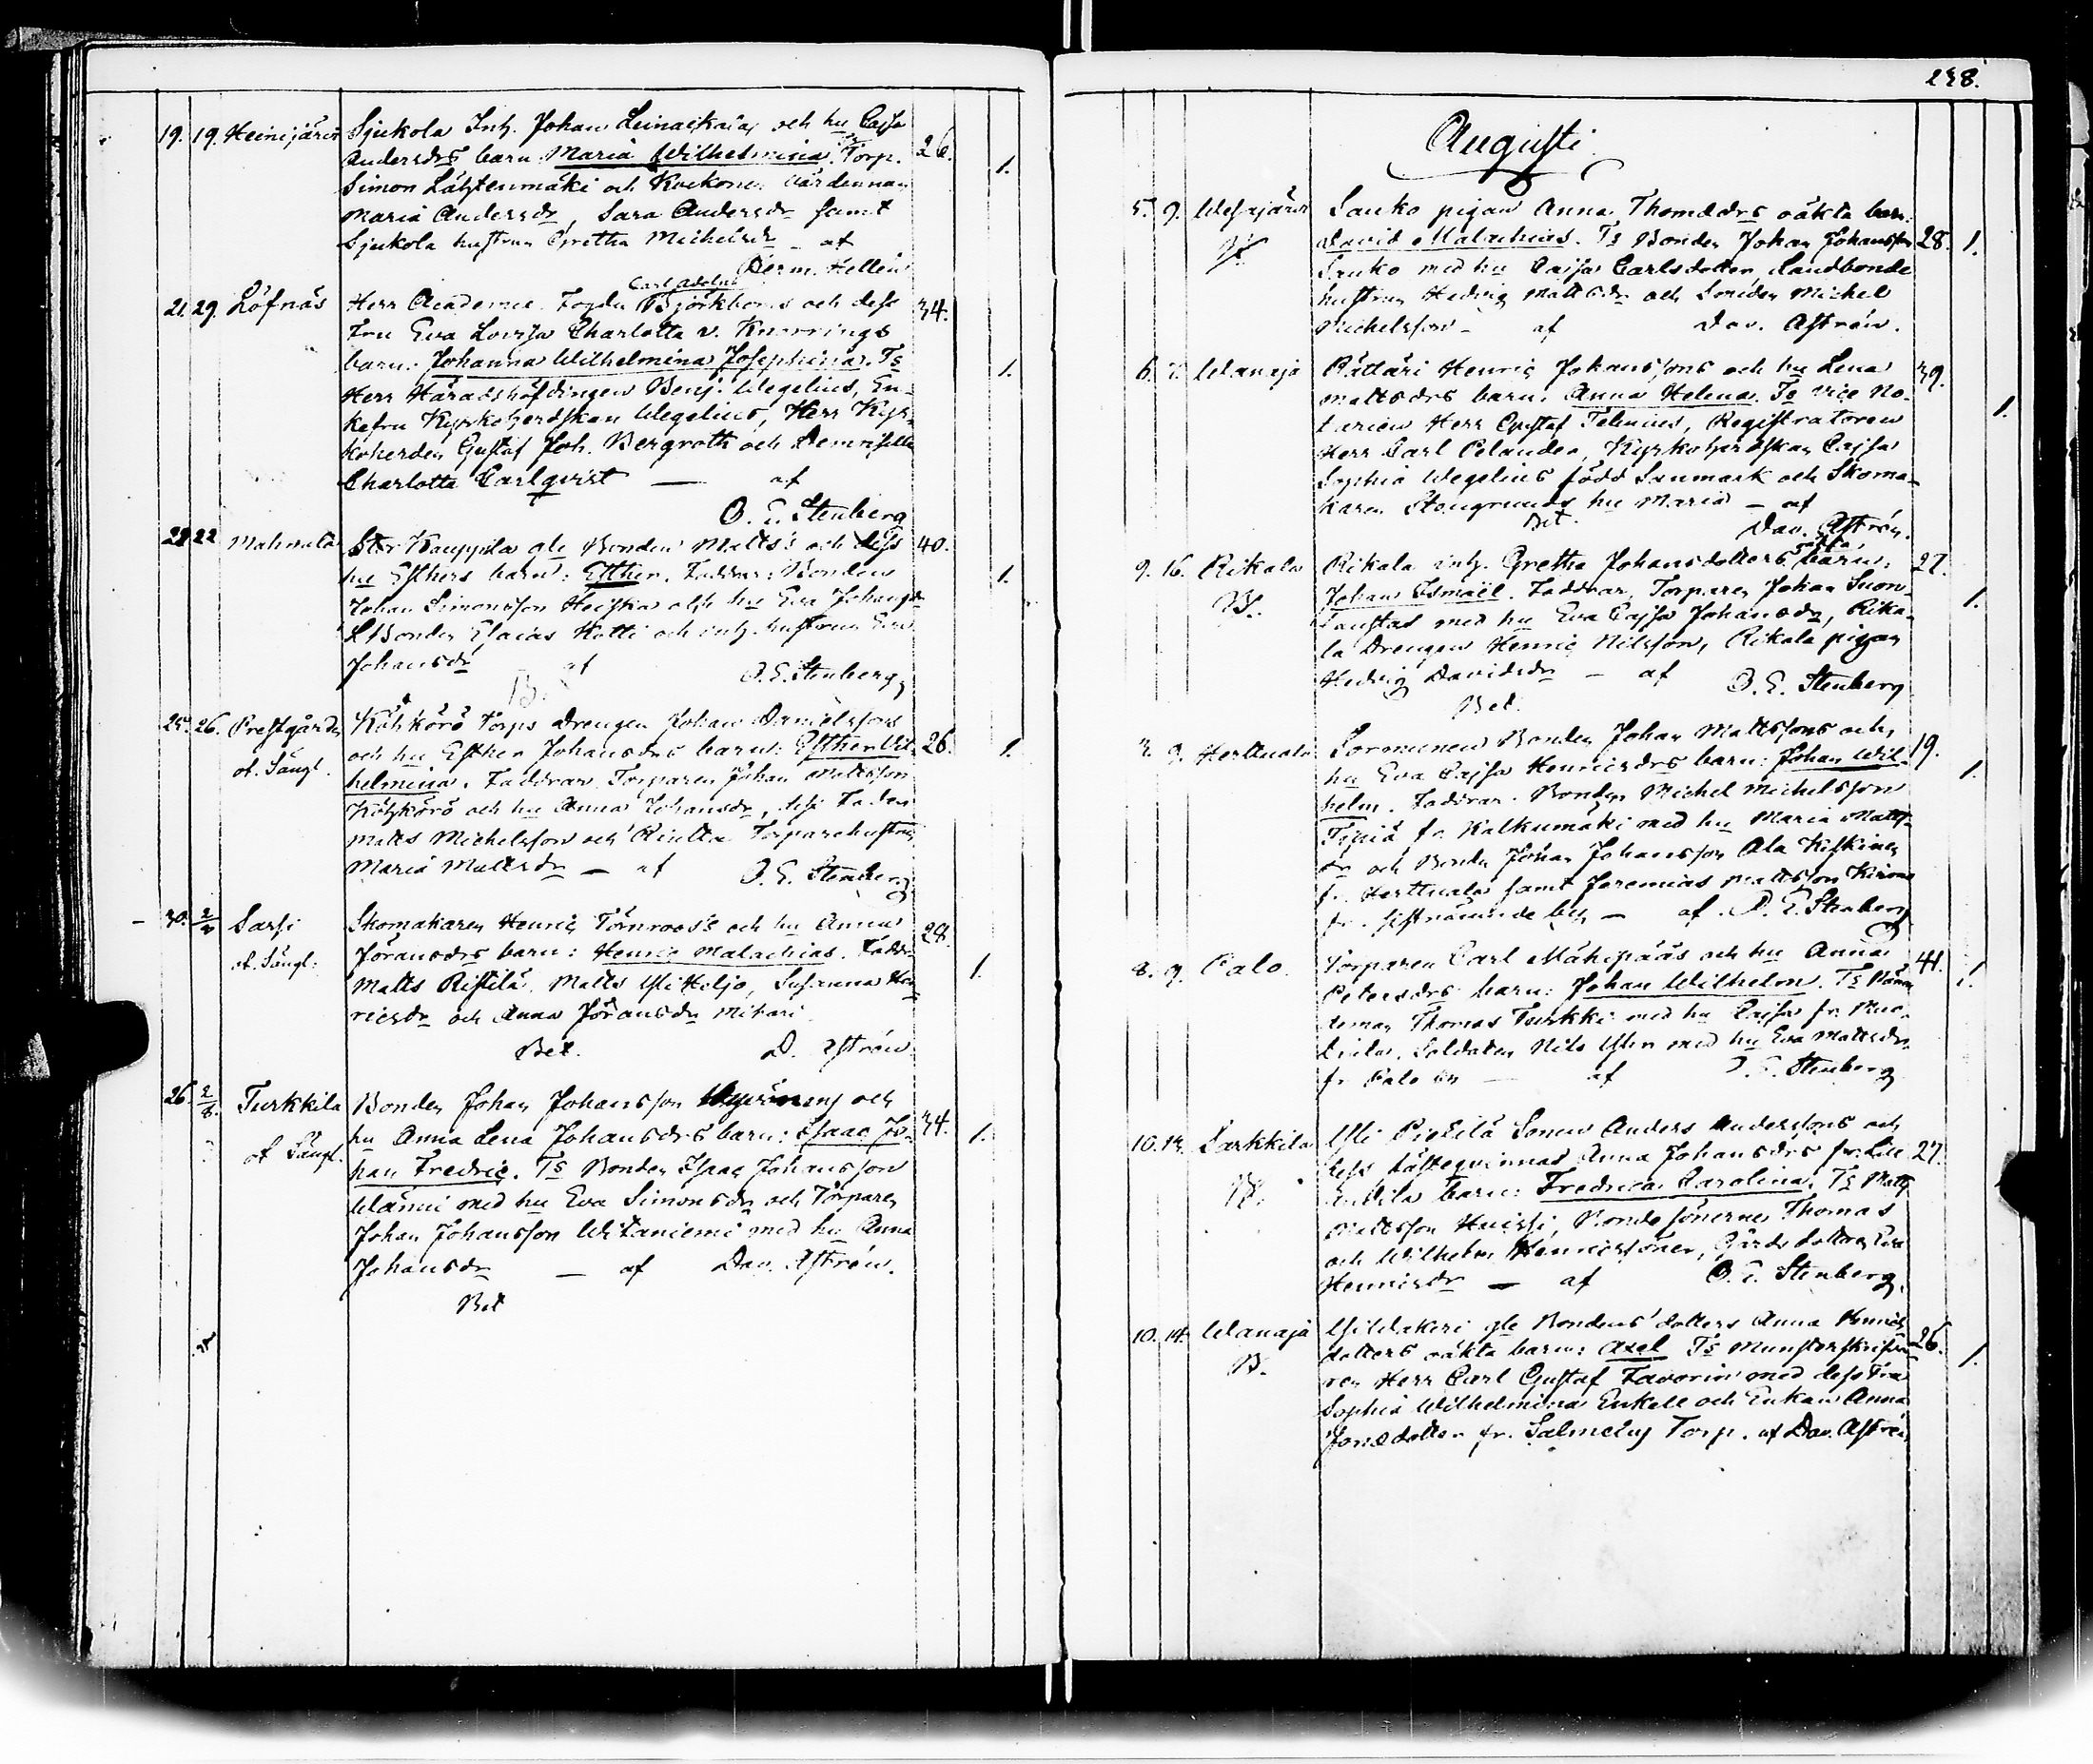 19. 19. Heinijärvi Sjukola Inh. Johan och hu Cajsa
Andersdrs barn Maria Wilhelmina. Torp. 26. 1.
Simon Lähtenmäki och
Maria Andersdr, Sara Andersdr samt
Sjukola hustrun Gretha Michelsdr af
Herm. Hellén
Carl Adolph
21. 29. Löfnäs Herr Academie Fogden Björkboms och dess 34.
Fru Eva Lovisa Charlotta v. Knorrings
barn: Johanna Wilhelmina Josephina. Ts 1.
Herr Häradshöfdingen Benj. Wegelius, En-
kefru Kyrkoherdskan Wegelius, Herr Kyr-
koherden Gustaf Joh. Bergroth och Demoiselle
Charlotta Carlqvist — af
O. E. Stenberg
22. 22. Mahnala Stor Kauppila gle Bonden Matts's och dess 40.
hu Esthers barn: Esther. Faddrar: Bonden 1.
Johan Simonsson Heiska och hu Eva Johansdr
Bonden Esaias Kotti och inh. hustrun Eva
Johansdr af O. E. Stenberg
B.
25. 26. Prestgården Köhkörö torps drengen Johan Danielssons
of. Sängl. och hu Esther Johansdrs barn: Esther Vil- 26. 1.
helmina. Faddrar Torparen Johan Mattsson
Köhkörö och hu Anna Johansdr, dess Fader
Matts Michelsson och Torparehustrun
Maria Mattsdr — af O. E. Stenberg
30. 2/8 Sarsi Skomakaren Henric Törnroos's och hu Anna 28.
of. Sängl. Jöransdrs barn: Henric Malachias. Faddr.
Matts Ristilä, Matts Yli Heljo, Susanna Hen- 1.
ricsdr och Anna Jöransdr Mikari
Bet. D. Astrén
26. 2/8. Turkkila Bonden Johan Johansson och
of Sängl. hu Anna Lena Johansdrs barn: Isaac Jo- 34. 1.
han Fredric. Ts Bonden Isaac Johansson
Wänni med hu Eva Simonsdr och Torparen
Johan Johansson Witaniemi med hu Anna
Johansdr — af Dav. Astrén.
Bet
238.
Augusti
5. 9. Wesajärvi Lauko pigan Anna Thomædrs oäkta barn:
David Malachias. Ts Bonden Johan Johansson 28. 1.
Lauko med hu Cajsa Carlsdotter Landbonde
hustrun Hedvig Mattsdr och Michel
Michelsson — af Dav. Astrén.
6. 7. Wanaja Rättäri Henric Johanssons och hu Lena 39.
Mattsdrs barn: Anna Helena. Ts Vice No- 1.
tarien Herr Gustaf Telenius, Registratoren
Herr Carl Celander, Kyrkoherdskan Cajsa
Sophia Wegelius född Sanmark och Skoma-
karen Stongrunds hu Maria — af
Bet. Dav. Astrén.
oäkta
9. 16. Rikala Rikala inh. Gretha Johansdotters barn: 27.
B. Johan Ismaël. Faddrar, Torparen Johan Suon- 1.
taustas med hu Eva Cajsa Johansdr, Rika-
la Drengen Henric Nilsson, Rikala pigan
Hedvig Davidsdr — af O. E. Stenberg
Bet.
3. 9. Herttuala Sormunen Bonden Johan Mattssons och 19.
hu Eva Cajsa Henricsdrs barn: Johan Wil- 1.
helm. Faddrar. Bonden Michel Michelsson
Tipiä fr. Kalkumäki med hu Maria Matts-
dr och Bonden Johan Johansson Ala Kiskinen
fr. Herttuala samt Jeremias Mattsson
fr. sistnämnde by — af O. E. Stenberg
8. 9. Palo Torparen Carl Mähepääs och hu Anna 41.
Petersdrs barn: Johan Wilhelm. Ts 1.
Thomas Turkki med hu Cajsa fr.
Soldaten Nils med hu Eva Mattsdr
fr. Palo by — af O. E. Stenberg
10. 13. Sarkkila Yli Pietilä Sonen Anders Anderssons och
B. dess fästeqvinnas Anna Johansdrs fr. 27.
barn: Fredrica Carolina. Ts Matts
Mattsson Huissi, Bonde sönerne Thomas
och Wilhelm Henricssöner, Gårds dottren Eva
Henricsdr — af O. E. Stenberg.
10. 14. Wanaja gle Bondens dotters Anna Henrics-
B. dotters oäkta barn: Axel Ts Munsterskrifva- 26. 1.
ren Herr Carl Gustaf Favorin med dess Fru
Sophia Wilhelmina Enkell och Enkan Anna
Jonædotter fr. Salmeby Torp. af Dav. Astrén